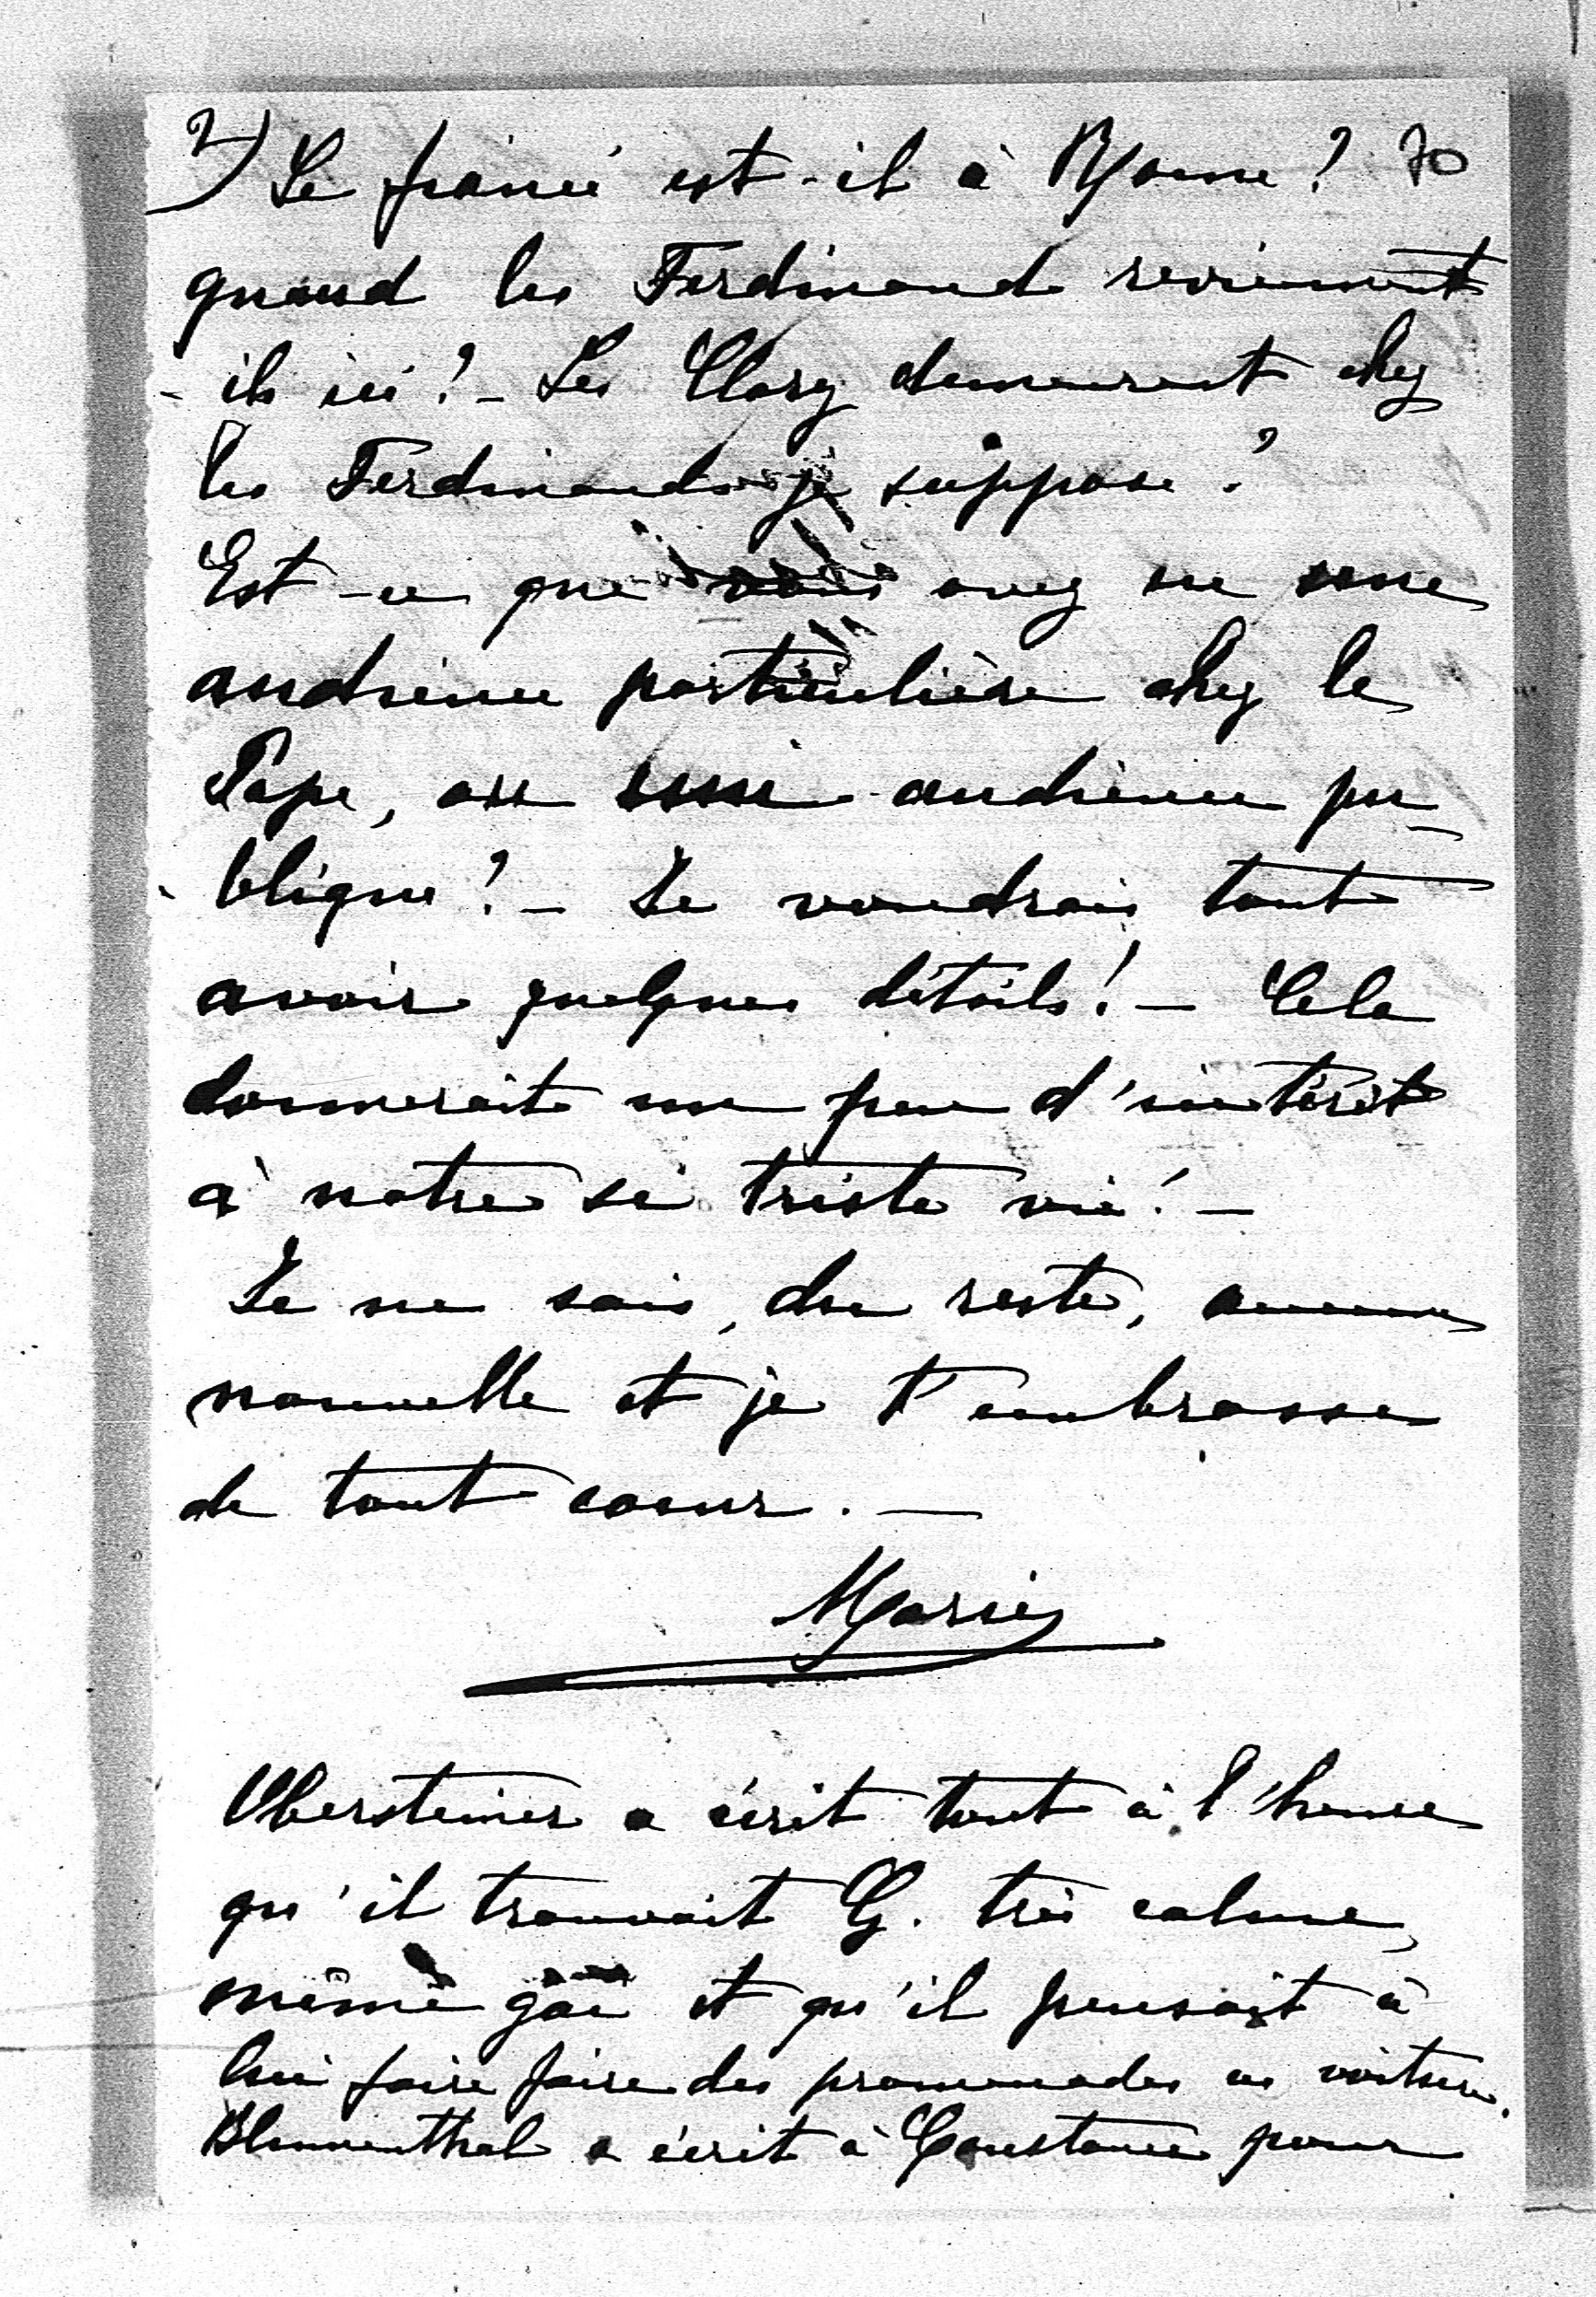 2) Le fiancé est-il à Rome ? 70
quand les Ferdinand reviennent
- ils ici ? - Les Clary demeurent chez
les Ferdinands je suppose ?
Est-ce que vous avez eu une
audience particulière chez le
Pape, ou une audience pu-
blique ? - Je voudrais tout
avoir quelques détails ! - Cela
donnerait un peu d'intérêt
à notre si triste vie ! -
Je ne sais, du reste, aucune
nouvelle et je t'embrasse
de tout coeur. -
Marie
Obersteiner a écrit tout à l'heure
qu'il trouvait G. très calme,
même gai et qu'il pensait à
lui faire faire des promenades en voiture.
Blumenthal a écrit à Constance pour